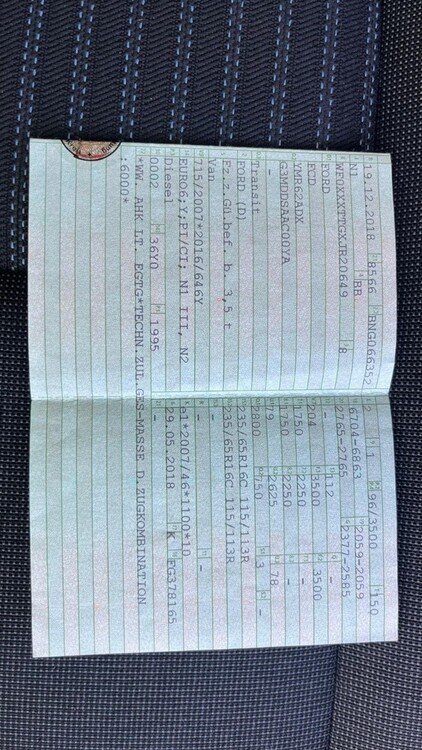 19.12.2018 8566 BNG066352
N1 BB
WF0XXXTTGXJR20649 R
FORD
FCD
YMR62ADX
G3MDDSAAC00YA
-
Transit
FORD (D)
Fz.z.Gü.bef. b. 3,5 t
Van
715/2007*2016/646Y
EURO6;Y;PI/CI; N1 III, N2
Diesel
0002 36Y0 1995
2 1 96/3500 150
6704-6863 2059-2059
2765-2765 2377-2585
- 112 -
204 3500 3500
1750 2250 -
1750 2250 -
79 2625 78
2800 750 3 -
235/65R16C 115/113R
235/65R16C 115/113R
-
- -
e1*2007/46*1100*10
29.05.2018 K FG378165
*WW. AHK LT. EGTG*TECHN.ZUL.GES-MASSE D.ZUGKOMBINATION
:6000*